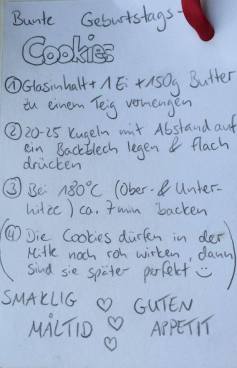 Bunte Geburtstags-
Cookies
① Glasinhalt + 1 Ei + 150g Butter
zu einem Teig vermengen
② 20-25 Kugeln mit Abstand auf
ein Backblech legen & flach
drücken
③ Bei 180°C (Ober- & Unter-
hitze) ca. 7min backen
(④ Die Cookies dürfen in der
Mitte noch roh wirken, dann
sind sie später perfekt ☺)
SMAKLIG ♡ GUTEN
MÅLTID ♡ APPETIT
♡